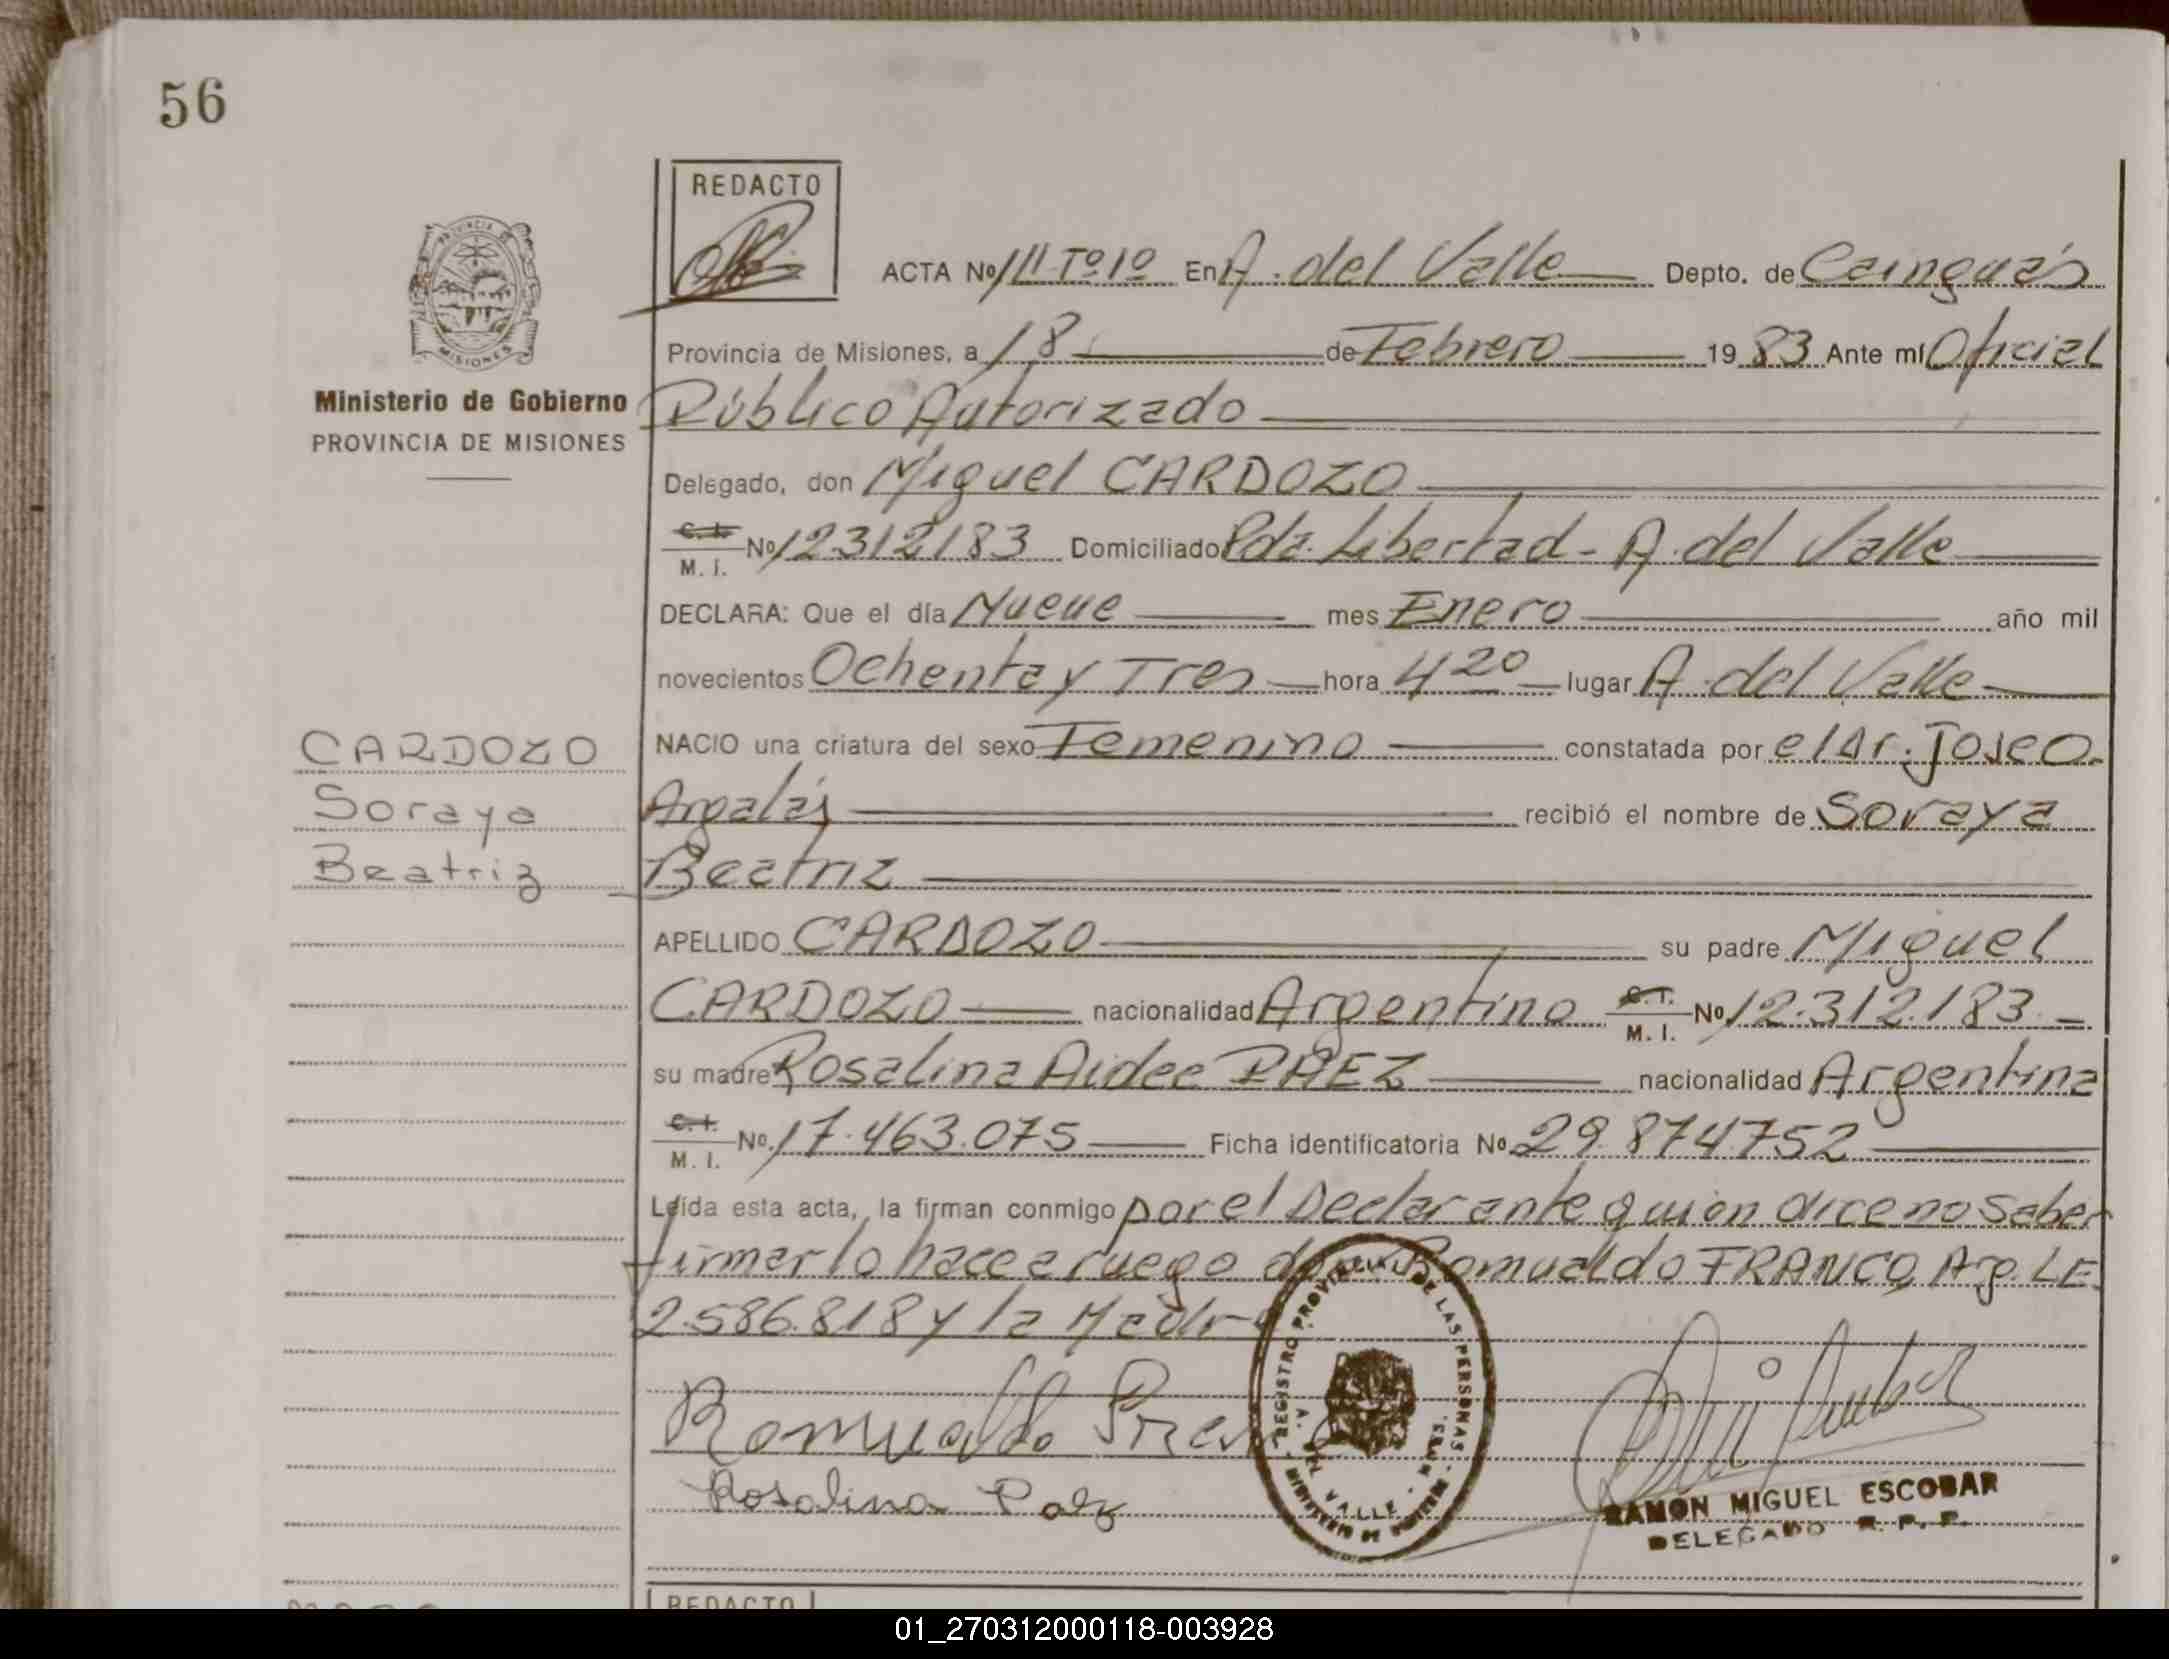 56
REDACTO
ACTA Nº 111 Tº 1º En A. del Valle Depto. de Cainguás
Provincia de Misiones, a 18 de Febrero 1983 Ante mí Oficial
Público Autorizado
Delegado, don Miguel CARDOZO
C. I. M. I. Nº 12312183 Domiciliado Pda. Libertad - A. del Valle
DECLARA: Que el día Nueve mes Enero año mil
novecientos Ochenta y Tres hora 4 20 lugar A. del Valle
NACIO una criatura del sexo Femenino constatada por el Dr. Jose O.
recibió el nombre de Soraya
Beatriz
APELLIDO CARDOZO su padre Miguel
CARDOZO nacionalidad Argentino C. I. M. I. Nº 12.312.183.
su madre Rosalina Aidee PAEZ nacionalidad Argentina
C. I. M. I. Nº 17.463.075 Ficha identificatoria Nº 29.874.752
Leída esta acta, la firman conmigo por el Declarante quien dice no saber
firmar lo hace a ruego don Romualdo FRANCO, Arg. LE
2.586.818 y la Madre
Romualdo
Rosalina Paez
REGISTRO PROVINCIAL DE LAS PERSONAS
A. DEL VALLE - MNES.
MINISTERIO DE GOBIERNO
RAMON MIGUEL ESCOBAR
DELEGADO R. P. P.
PROVINCIA DE
MISIONES
Ministerio de Gobierno
PROVINCIA DE MISIONES
CARDOZO
Soraya
Beatriz
REDACTO
01_270312000118-003928